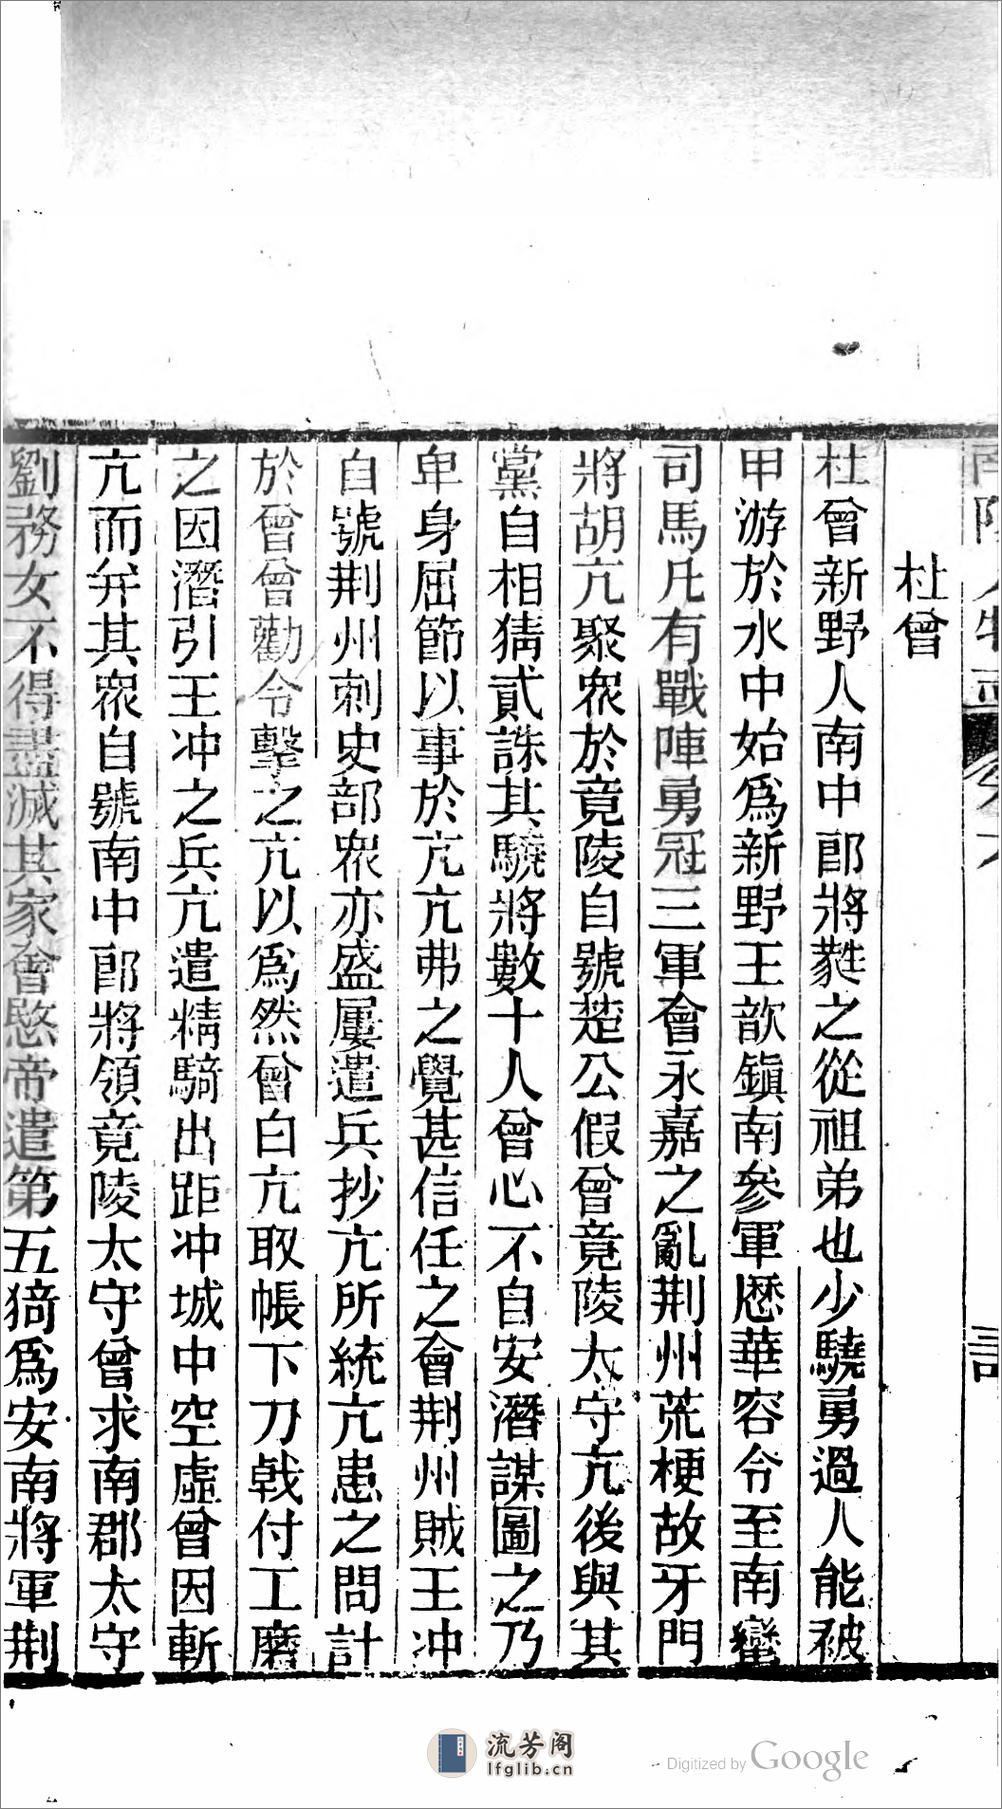 杜曾
杜曾新野人南中郎將蕤之從祖弟也少驍勇過人能被
甲游於水中始爲新野王歆鎭南參軍歷華容令至南蠻
司馬凡有戰陣勇冠三軍會永嘉之亂荆州荒梗故牙門
將胡亢聚衆於竟陵自號楚公假曾竟陵太守亢後與其
黨自相猜貳誅其驍將數十人曾心不自安潛謀圖之乃
卑身屈節以事於亢亢弗之覺甚信任之會荆州賊王冲
自號荆州刺史部衆亦盛屢遣兵抄亢所統亢患之問計
於曾曾勸令擊之亢以爲然曾白亢取帳下刀戟付工磨
之因潛引王冲之兵亢遣精騎出距冲城中空虛曾因斬
亢而并其衆自號南中郎將領竟陵太守曾求南郡太守
劉務女不得盡滅其家會愍帝遣第五猗爲安南將軍荆
流芳阁
lfglib.cn
Digitized by Google